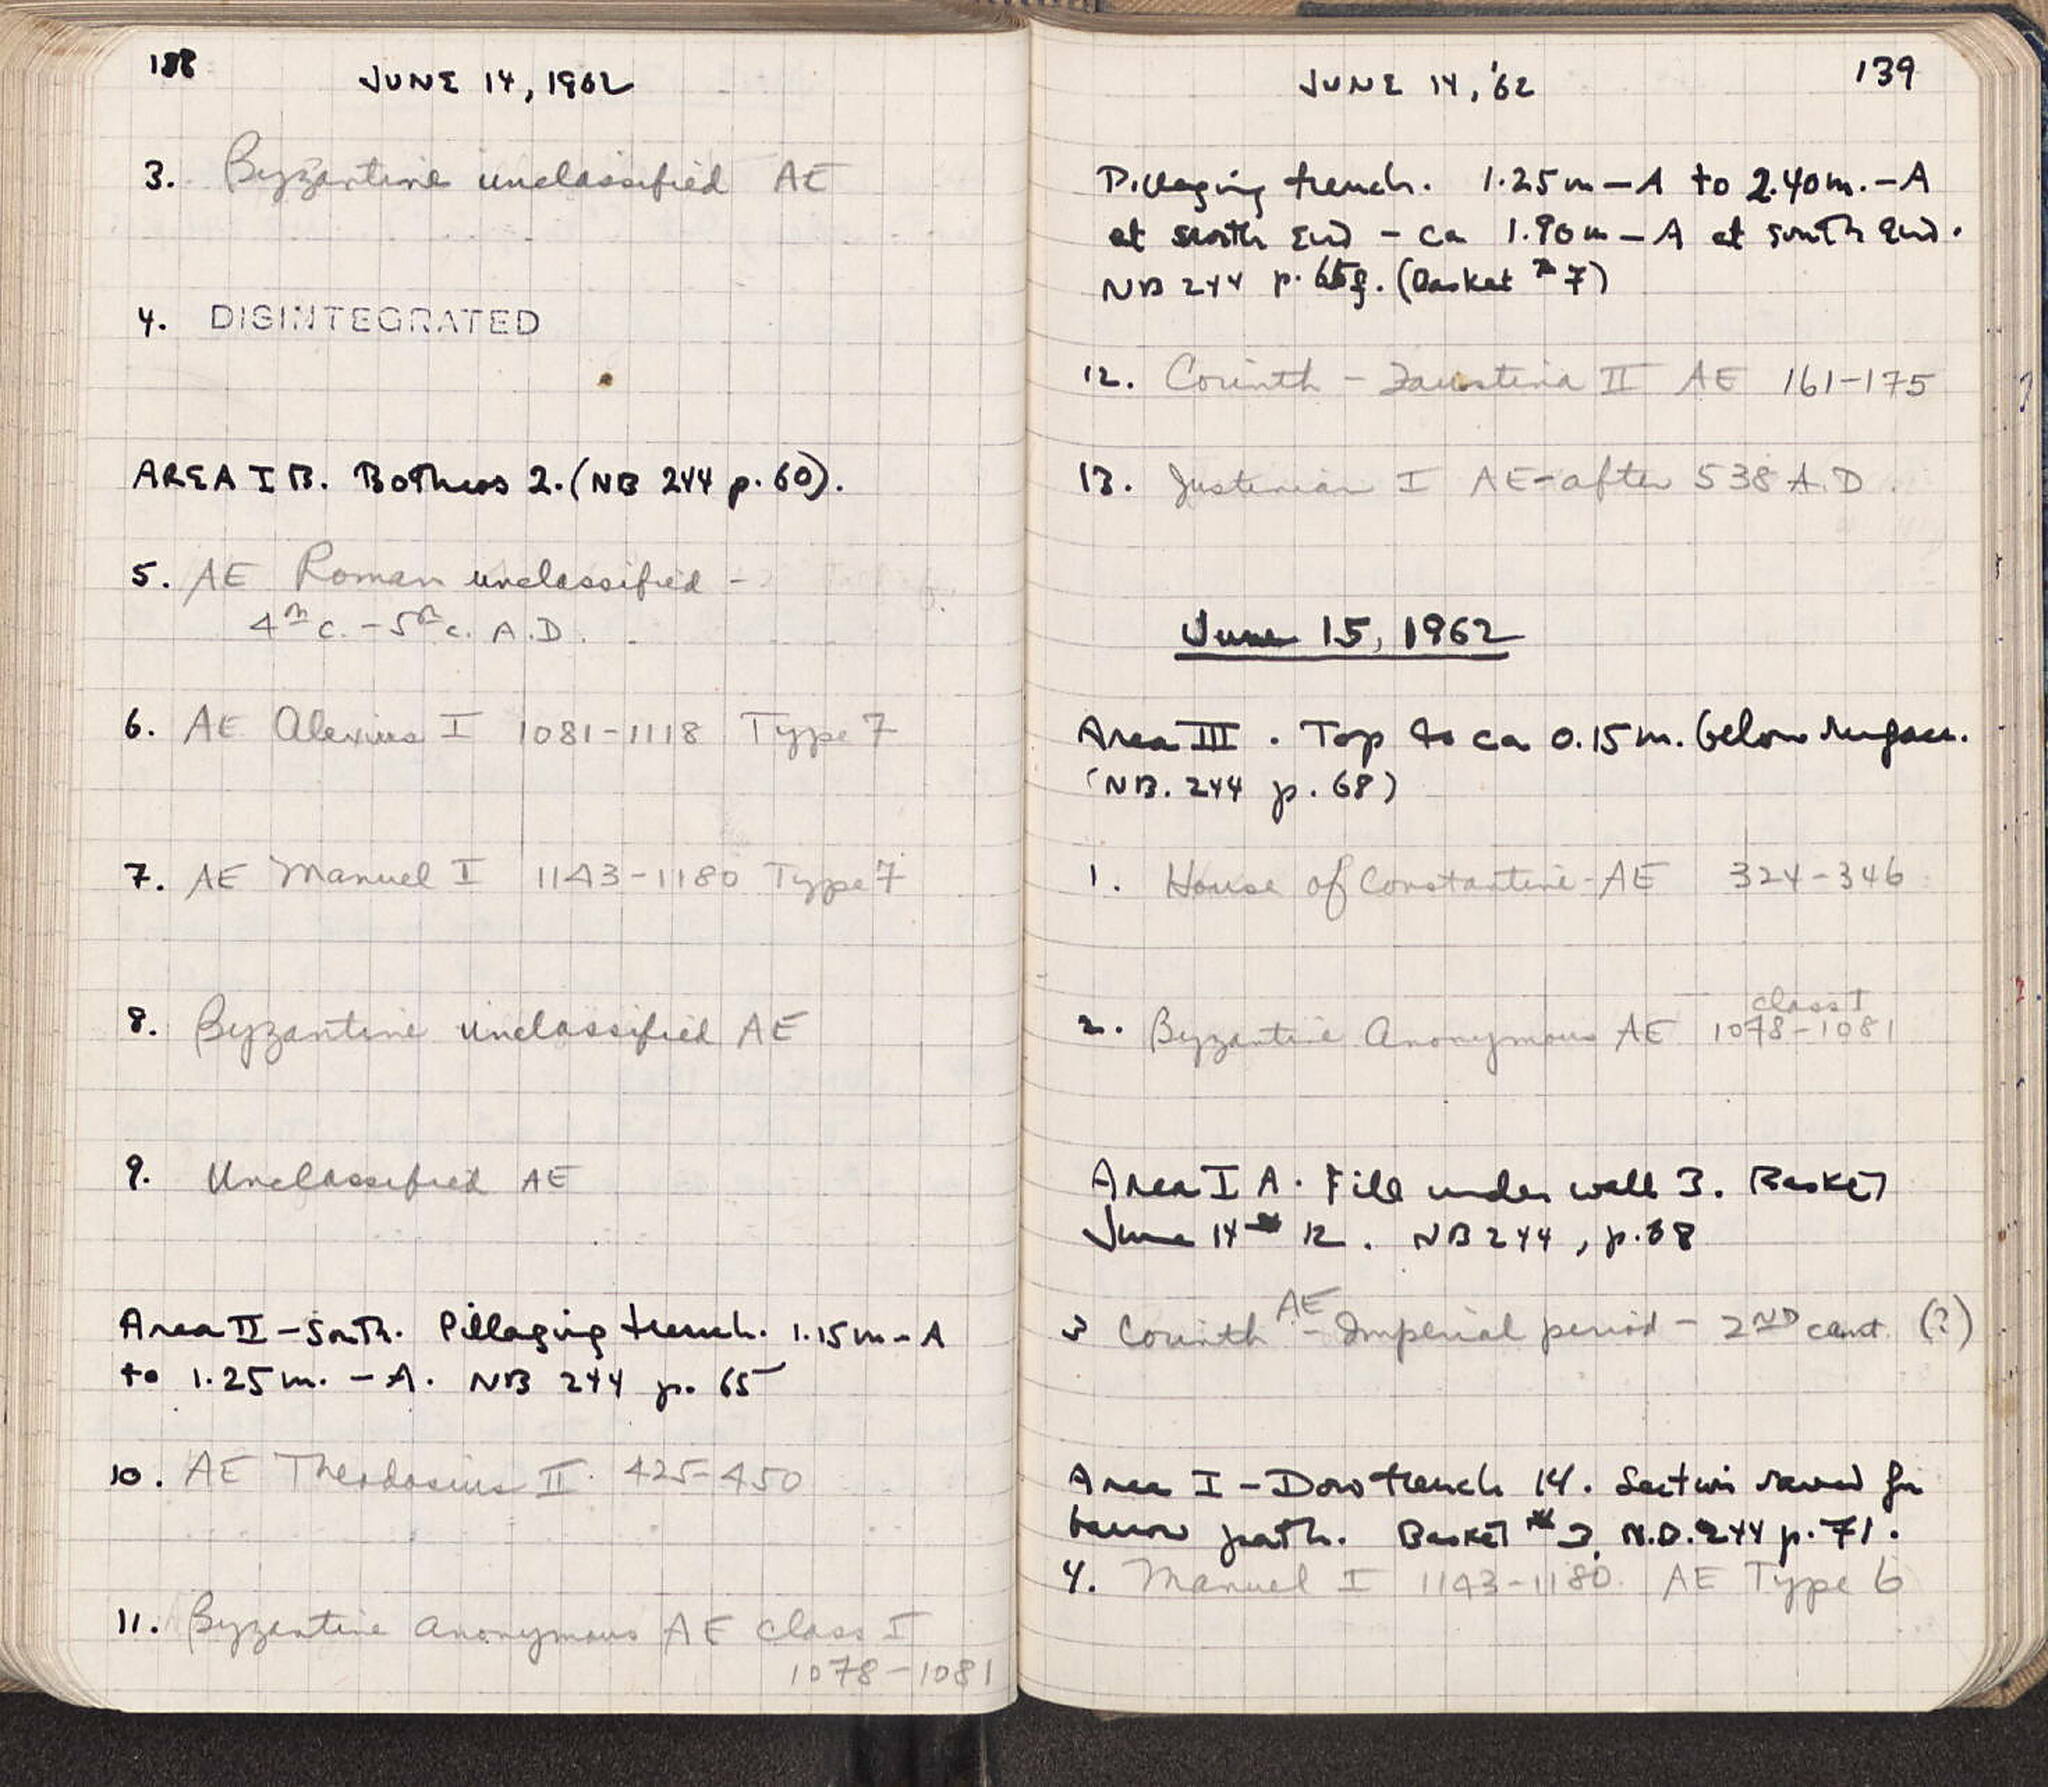 138
JUNE 14, 1962
3. Byzantine unclassified AE
4. DISINTEGRATED
AREA I B. Bothros 2. (NB 244 p. 60).
5. AE Roman unclassified -
4th c. - 5th c. A.D.
6. AE Alexius I 1081-1118 Type 7
7. AE Manuel I 1143-1180 Type 7
8. Byzantine unclassified AE
9. Unclassified AE
Area II - South. Pillaging trench. 1.15m - A
to 1.25 m. - A. NB 244 p. 65
10. AE Theodosius II 425-450
11. Byzantine Anonymous AE class I
1078-1081
JUNE 14, '62
139
Pillaging trench. 1.25m - A to 2.40m. - A
at north end - ca 1.90m - A at south end.
NB 244 p. 65f. (Basket # 7)
12. Corinth - Faustina II AE 161-175
13. Justinian I AE - after 538 A.D.
June 15, 1962
Area III. Top to ca 0.15 m. below surface.
(NB. 244 p. 68)
1. House of Constantine - AE 324-346
class I
2. Byzantine Anonymous AE 1078-1081
Area I A. Fill under wall 3. Basket
June 14 # 12. NB 244, p. 38
AE
3 Corinth - Imperial period - 2ND cent. (?)
Area I - Dow trench 14. Section saved for
barrow path. Basket # 3, N.B. 244 p. 71.
4. Manuel I 1143-1180 AE Type 6